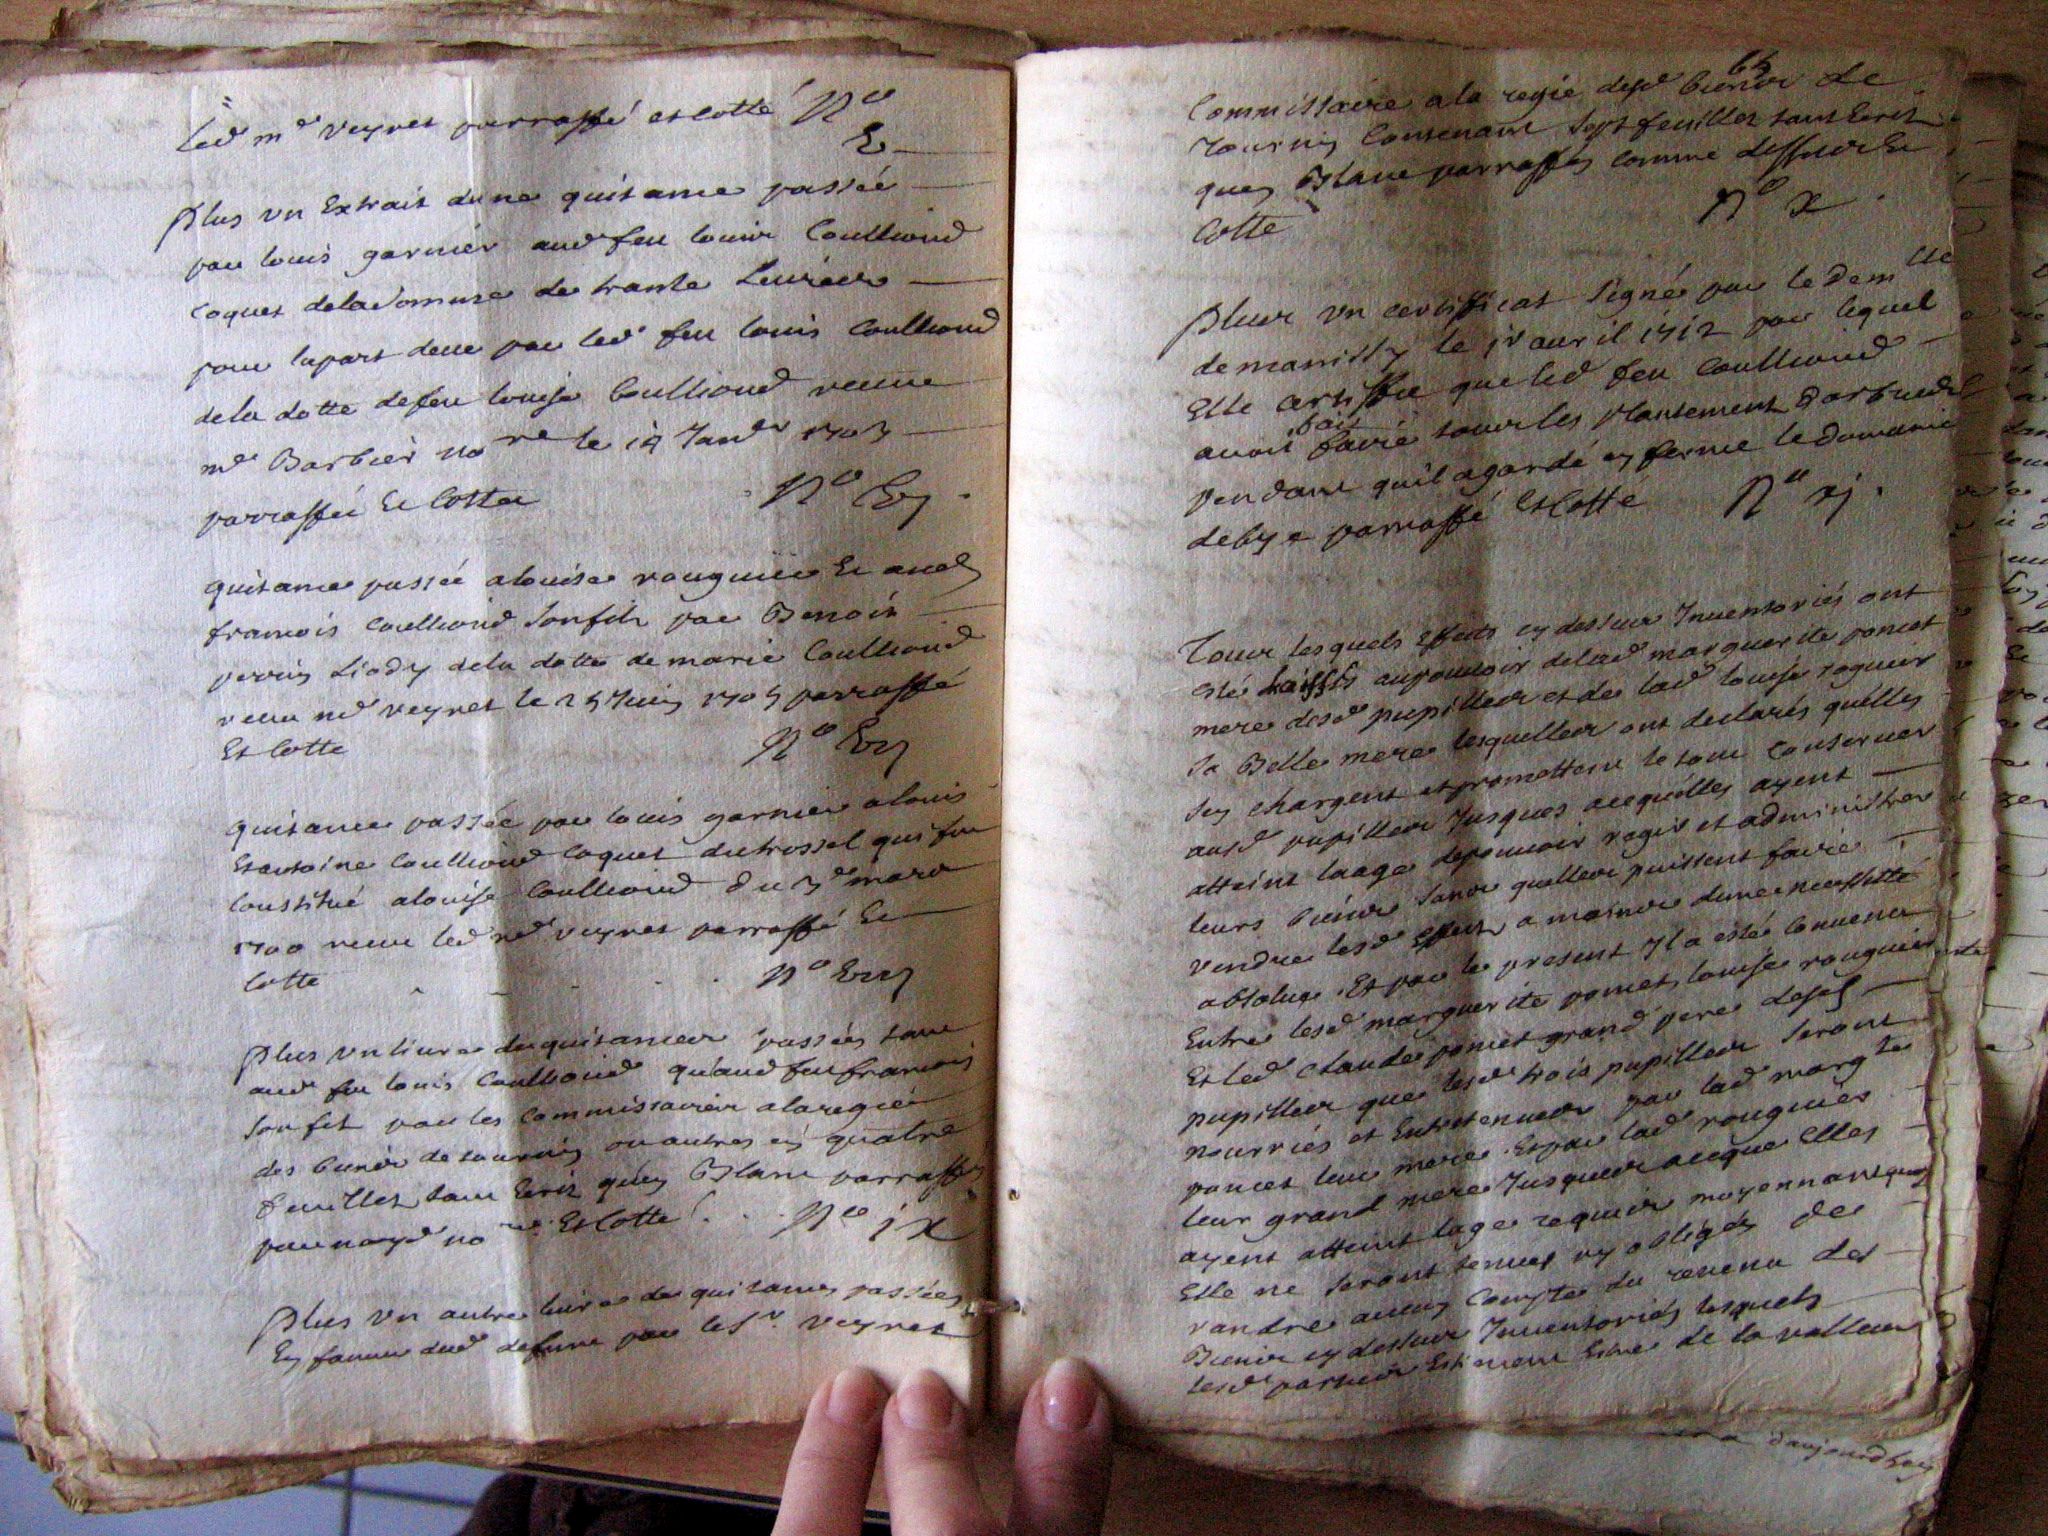 led mᵉ veyret parraffé et cotté Nᵒ
V
Plus vn Extrait dune quitance passée
par louis garnier aud feu louis Coullioud
Coquet de la somme de trante Livres
pour la part deue par led feu louis Coullioud
de la dotte de feu louise Coullioud receue
mᵉ Barbier noʳᵉ le 19 Janᵉʳ 1703
parraffée Et Cottée Nᵒ Vj
quitance passée a louise rouguier Et aud
francois Coullioud son fils par Benoist
perrin de la dotte de marie Coullioud
receu mᵉ veyret le 25 Juin 1705 parraffé
Et Cotte Nᵒ Vij
quitance passée par louis garnier a louis
Et antoine Coullioud Coquet du trossel qui fu
Constitué a louise Coullioud du 3ᵉ mars
1700 receue led mᵉ veyret parraffé Et
Cotte Nᵒ Viij
Plus vn liure de quitances passées tant
aud feu louis Coullioud qu'aud feu francois
son fils par les Commissaires a la regie
des biens de tournin ou autres en quatre
feuilles tant Ecris qu'en Blanc parraffés
par noʳᵉ Et Cotte Nᵒ ix
Plus vn autre liure de quitances passées
En faueur dud defunt par le Sʳ veyret
64
Commissaire a la regie desd biens de
tournin Contenant sept feuilles tant Ecris
quen Blanc parraffés comme dessus Et
Cotte Nᵒ x
Plus vn certifficat signé par le demˡˡᵉ
de manissy le auril 1712 par lequel
Elle certiffie que led feu Coullioud
auoit fait faire tous les plantement darbres
pendant quil a gardé en ferme le domaine
de bye parraffé Et Cotté Nᵒ xj
Tous lesquels effects cy dessus Inuentoriés ont
esté laissés au pouuoir de lad marguerite poncet
mere desd pupilles et de lad louise roguier
sa Belle mere lesquelles ont declarés quelles
sen chargent et promettent le tout Conseruer
ausd pupilles Jusques a ce quelles ayent
atteint laage de pouuoir regir et administrer
leurs biens sans quelles puissent faire
vendre lesd effects a moins dune necessitté
absolue. Et par le present Jl a esté Conuenu
Entre lesd marguerite poncet, louise rouguier
Et led Claude poncet grand pere desd
pupilles que lesd trois pupilles seront
nourries et Entretenues par lad margᵗᵉ
poncet leur mere. Et par lad rouguier
leur grand mere Jusques a ce que Elles
ayent atteint lage requis moyennant quoy
Elle ne seront tenues ny obligés de
randre aucun Compte du reuenu des
Biens cy dessus Inuentoriés lesquels
lesd parties Estiment Estre de la valleur
daujourdhuy